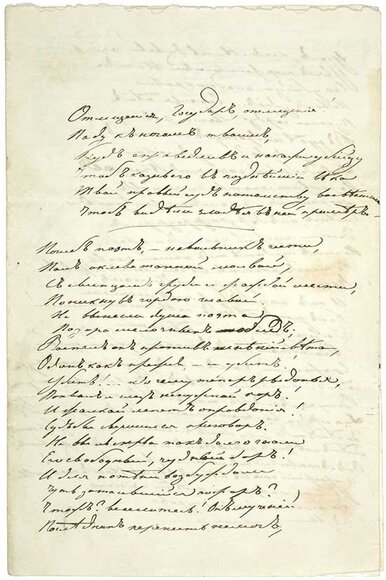 Отмщенія, Государь, отмщенія!
Паду къ ногамъ твоимъ,
Будь справедливъ и накажи убійцу
Чтобъ казнь его въ позднѣйшіе вѣка
Твой правый судъ потомству возвѣстила
Чтобъ видѣли злодѣи въ ней примѣръ.
Погибъ поэтъ, - невольникъ чести,
Палъ оклеветанный молвой,
Съ свинцомъ въ груди и жаждой мести,
Поникнувъ гордой главой
Не вынесла душа поэта
Позора мелочныхъ обидъ.
Возсталъ онъ противъ мнѣній свѣта,
Одинъ какъ прежде, - и убитъ
Убитъ! ... къ чему теперь рыданья,
Похвалъ и слезъ ненужный хоръ!
И жалкій лепетъ оправданья!
Судьбы свершился приговоръ.
Не вы ль сперва такъ долго гнали
Его свободный, чудный даръ!
И для потѣхи возбуждали
Чуть затаившійся пожаръ?
Чтожъ? веселитесь! Онъ мученій
Послѣднихъ перенесть не могъ,